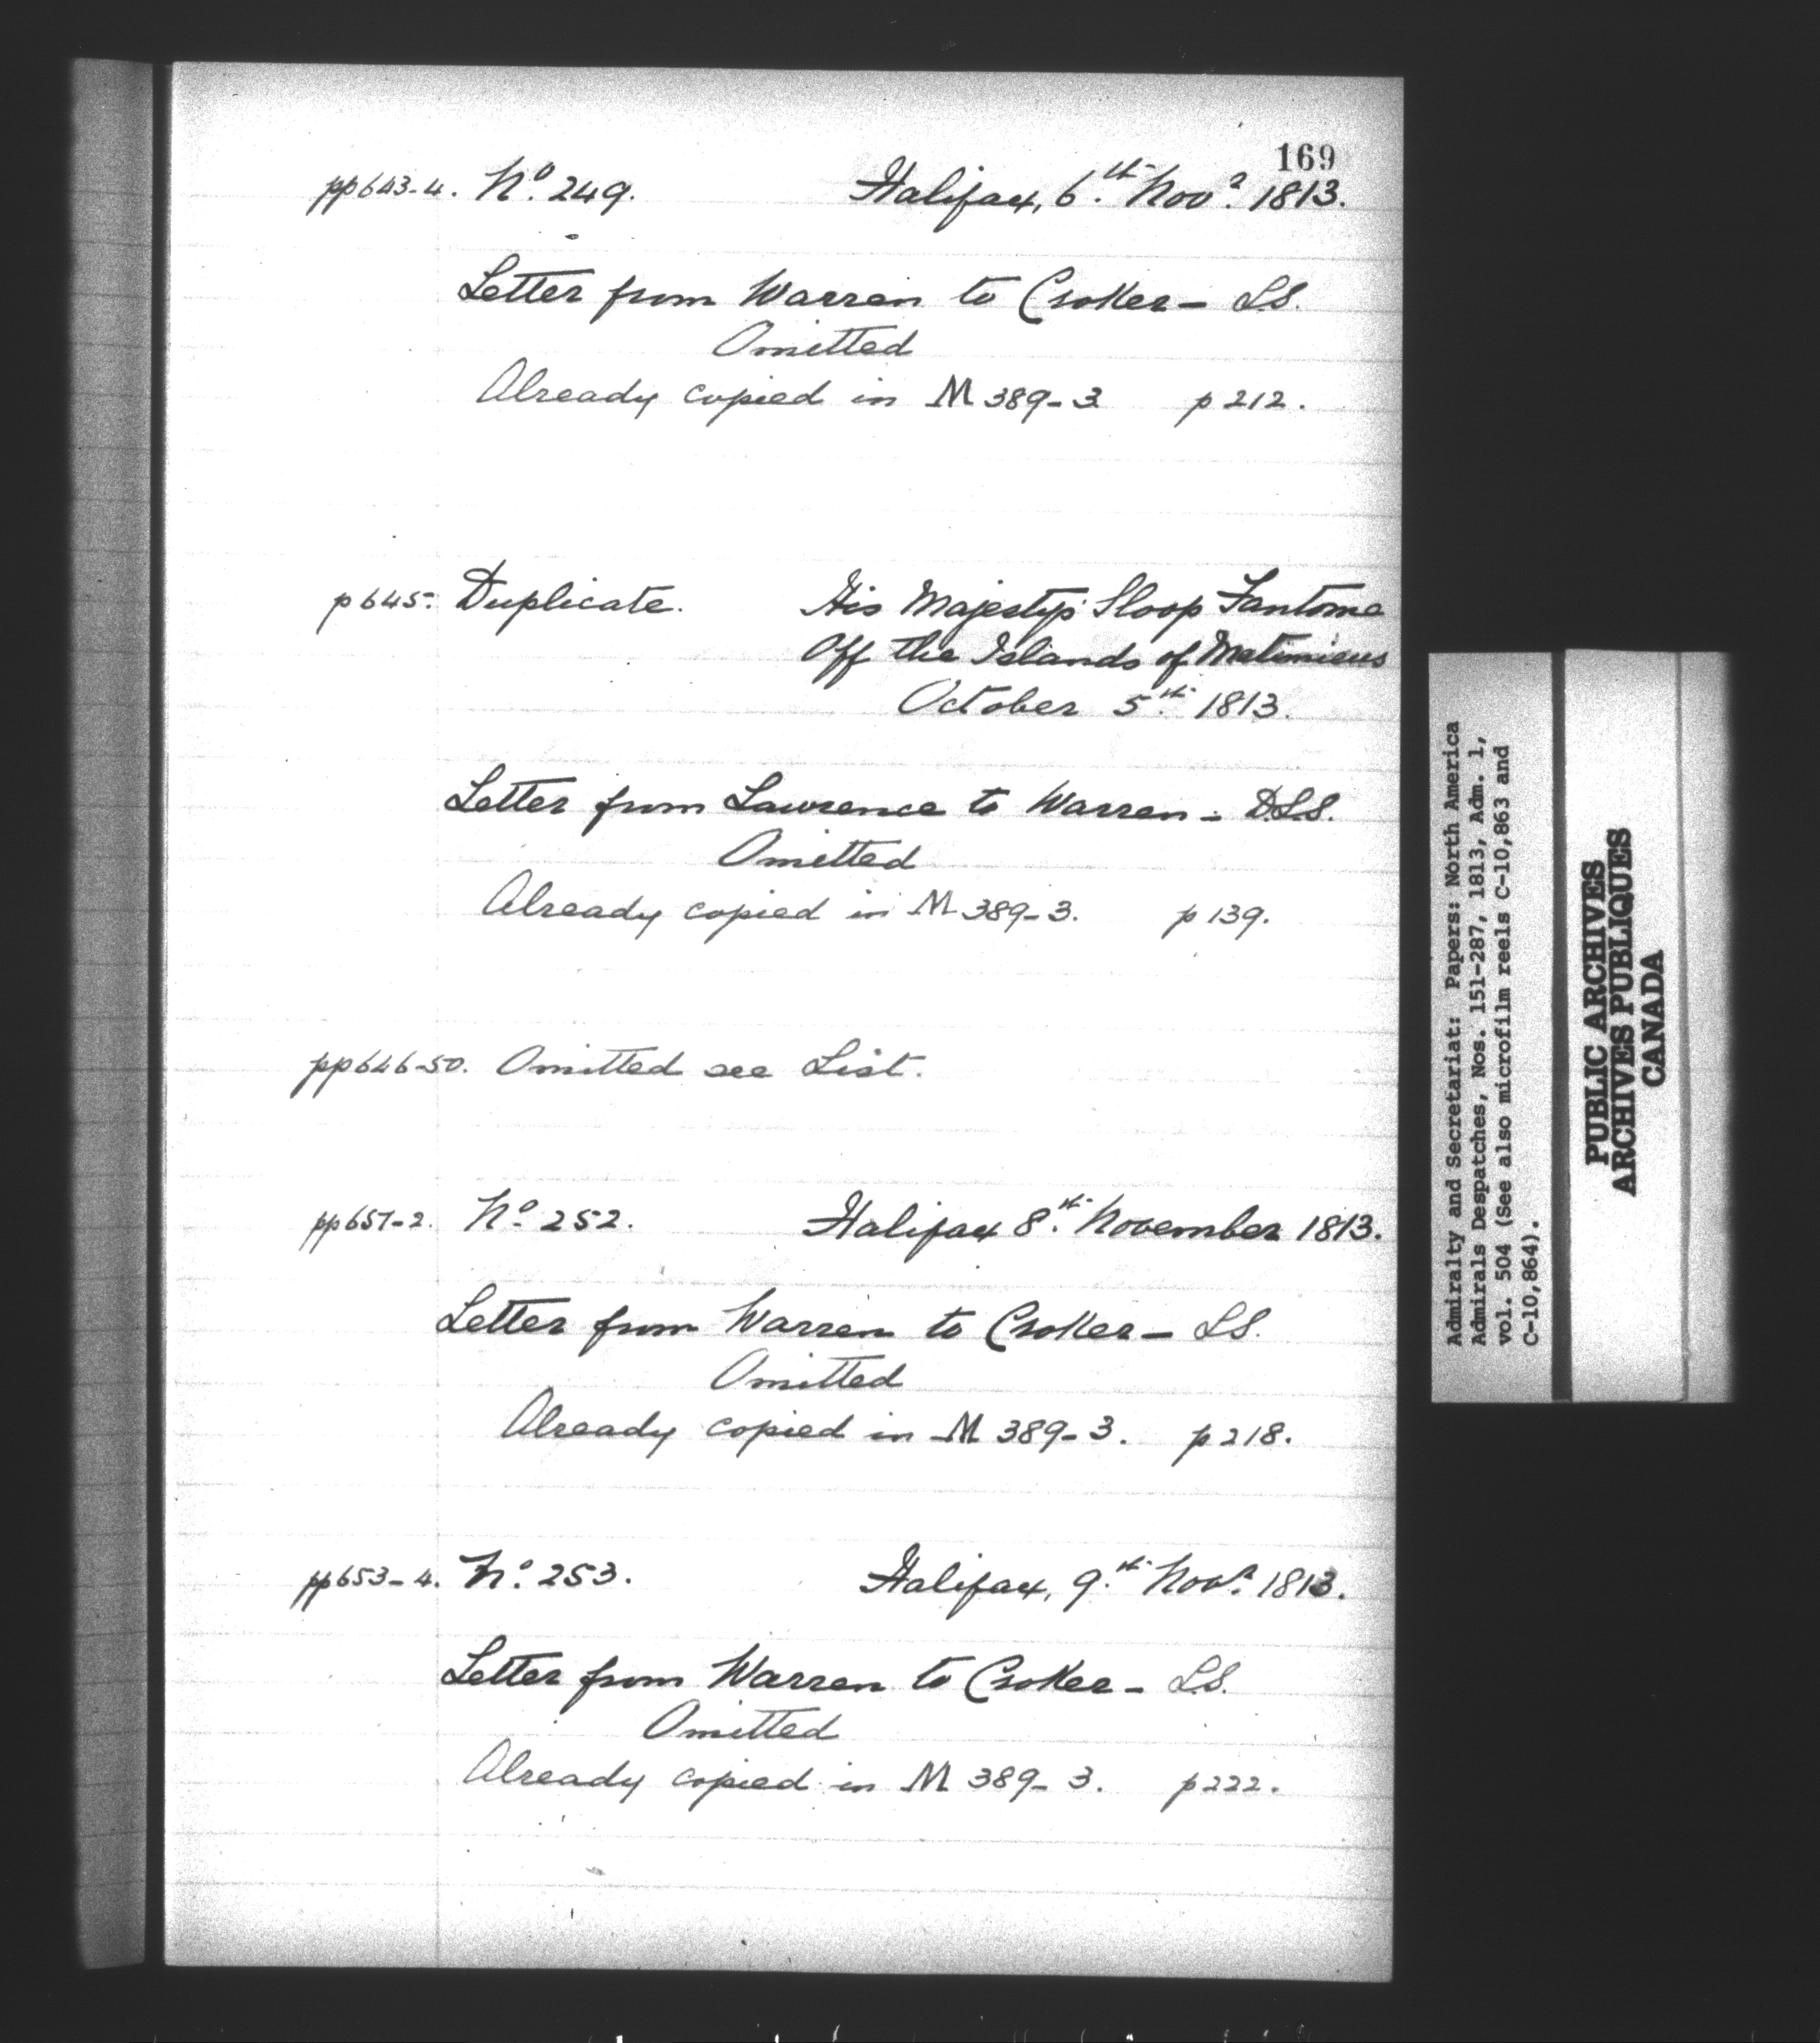 169
pp643-4. No. 249. Halifax, 6.th Novr. 1813.
Letter from Warren to Croker — L.S.
Omitted
Already copied in M 389-3 p 212.
p 645. Duplicate. His Majesty's Sloop Fantome
Off the Islands of Metinicus
October 5th. 1813.
Letter from Lawrence to Warren - D.L.S.
Omitted
Already copied in M 389-3. p 139.
pp646-50. Omitted see List.
pp651-2. No. 252. Halifax 8.th November 1813.
Letter from Warren to Croker — LS.
Omitted
Already copied in M 389-3. p 218.
pp653-4. No. 253. Halifax, 9.th Novr. 1813.
Letter from Warren to Croker - L.S.
Omitted
Already copied in M 389-3. p 222.
Admiralty and Secretariat: Papers: North America
Admirals Despatches, Nos. 151-287, 1813, Adm. 1,
vol. 504 (See also microfilm reels C-10,863 and
C-10,864).
PUBLIC ARCHIVES
ARCHIVES PUBLIQUES
CANADA